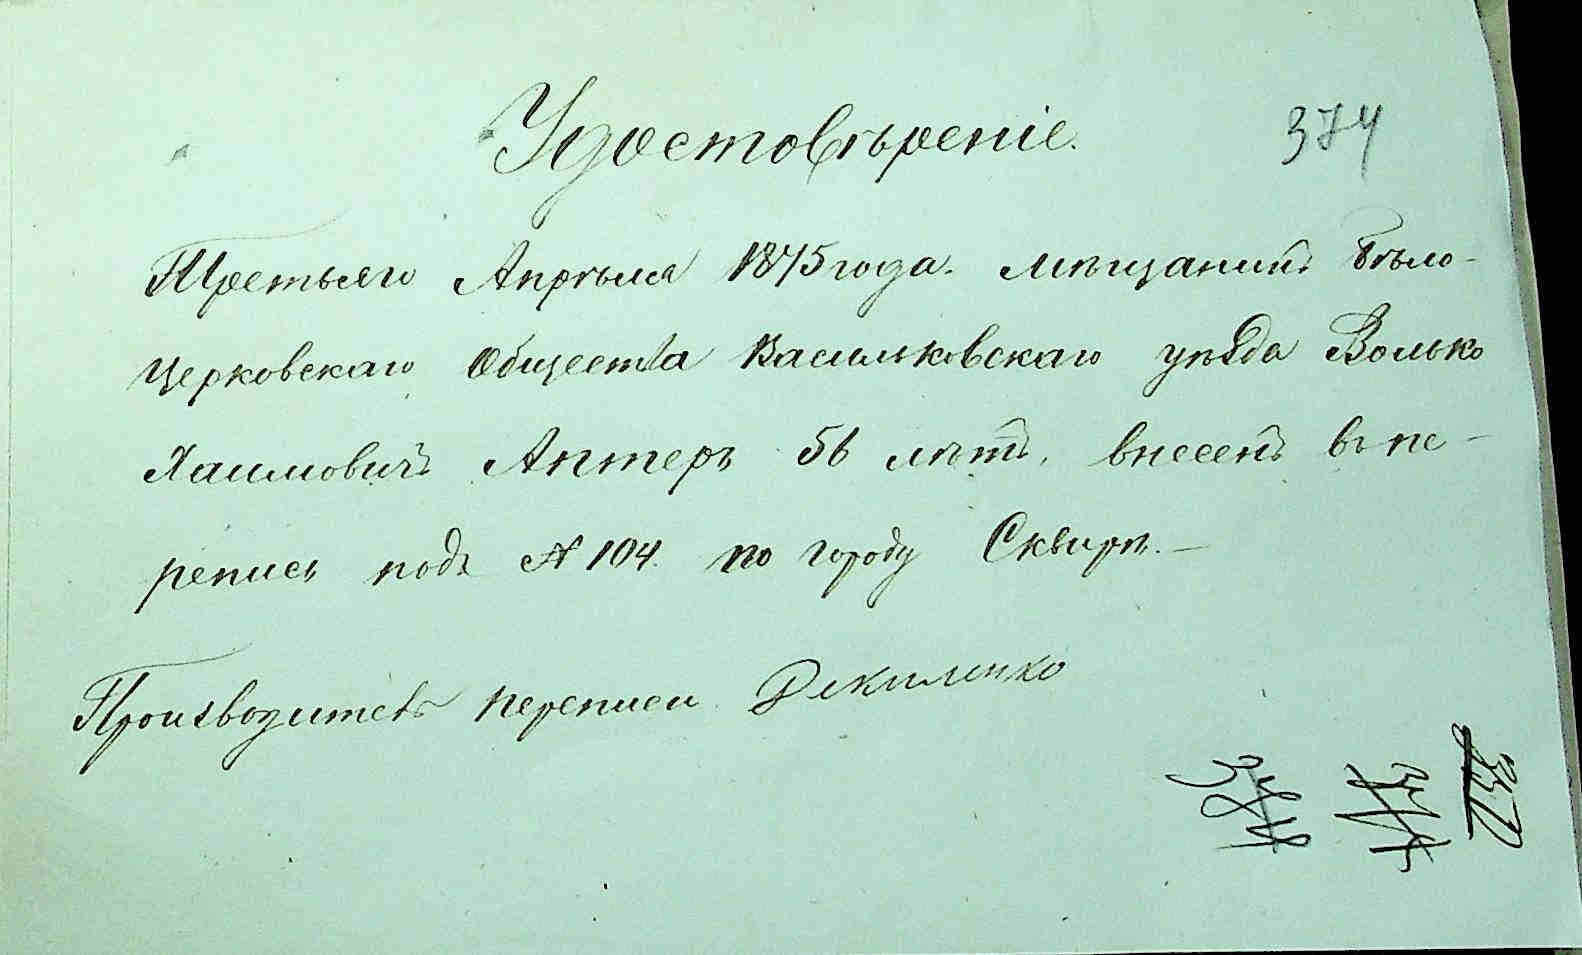 Удостовѣреніе.
374
Третьяго Апрѣля 1875 года. мѣщанинъ Бѣло-
Церковскаго Общества Васильковскаго уѣзда Волько
Хаимовичъ Аптеръ 56 лѣтъ, внесенъ въ пе-
репись подъ № 104. по городу Сквирѣ. —
Производитель переписи